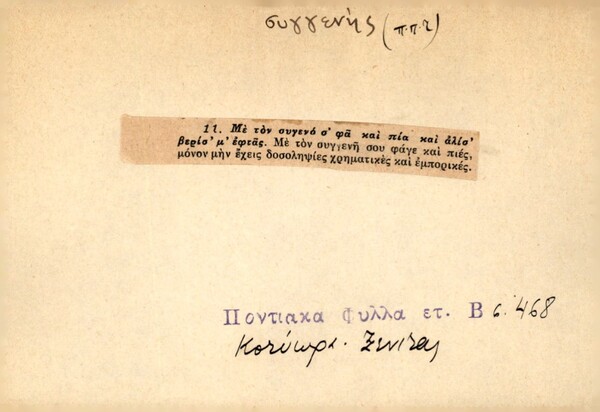 συγγενής (π.π.γ)
11. Μὲ τὸν συγενό σ' φᾶ καὶ πία καὶ ἀλίσ'
βερίσ' μ' ἐφτᾶς. Μὲ τὸν συγγενῆ σου φάγε καὶ πιές,
μόνον μὴν ἔχεις δοσοληψίες χρηματικὲς καὶ ἐμπορικές.
Ποντιακα Φυλλα ετ. Β σ. 468
Κοτύωρα.